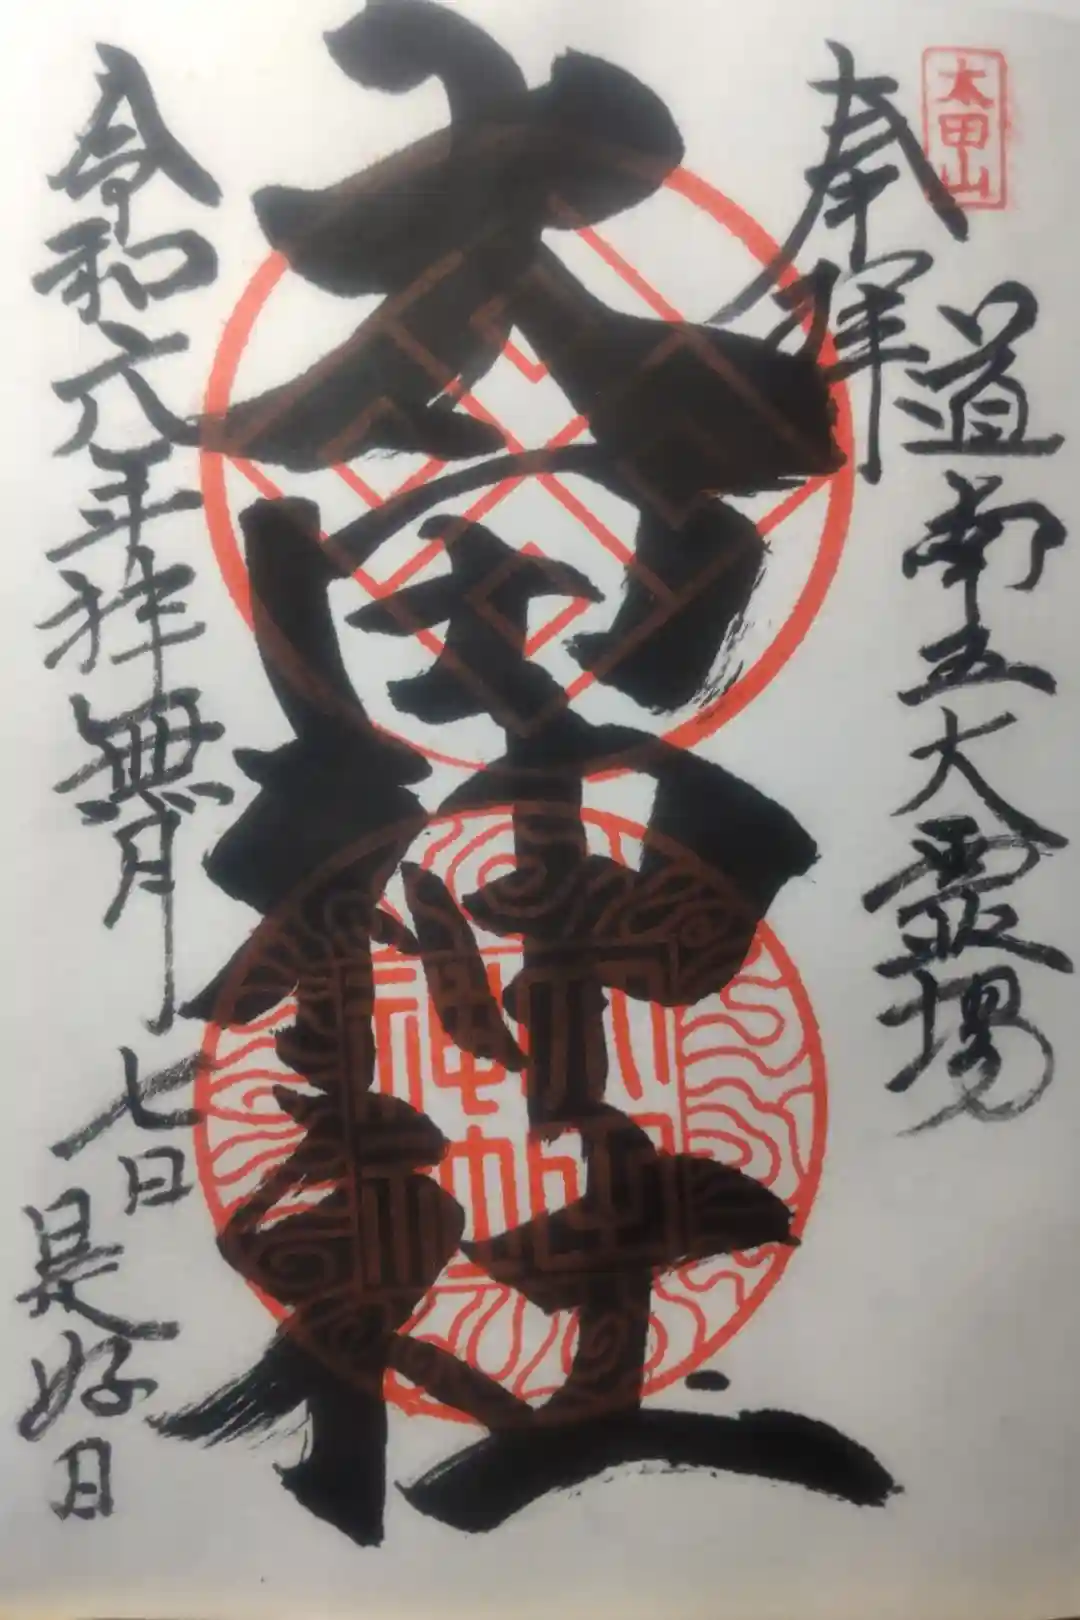 太田山
奉拝
道南五大霊場
太田神社
令和六年拝無月七日
是好日